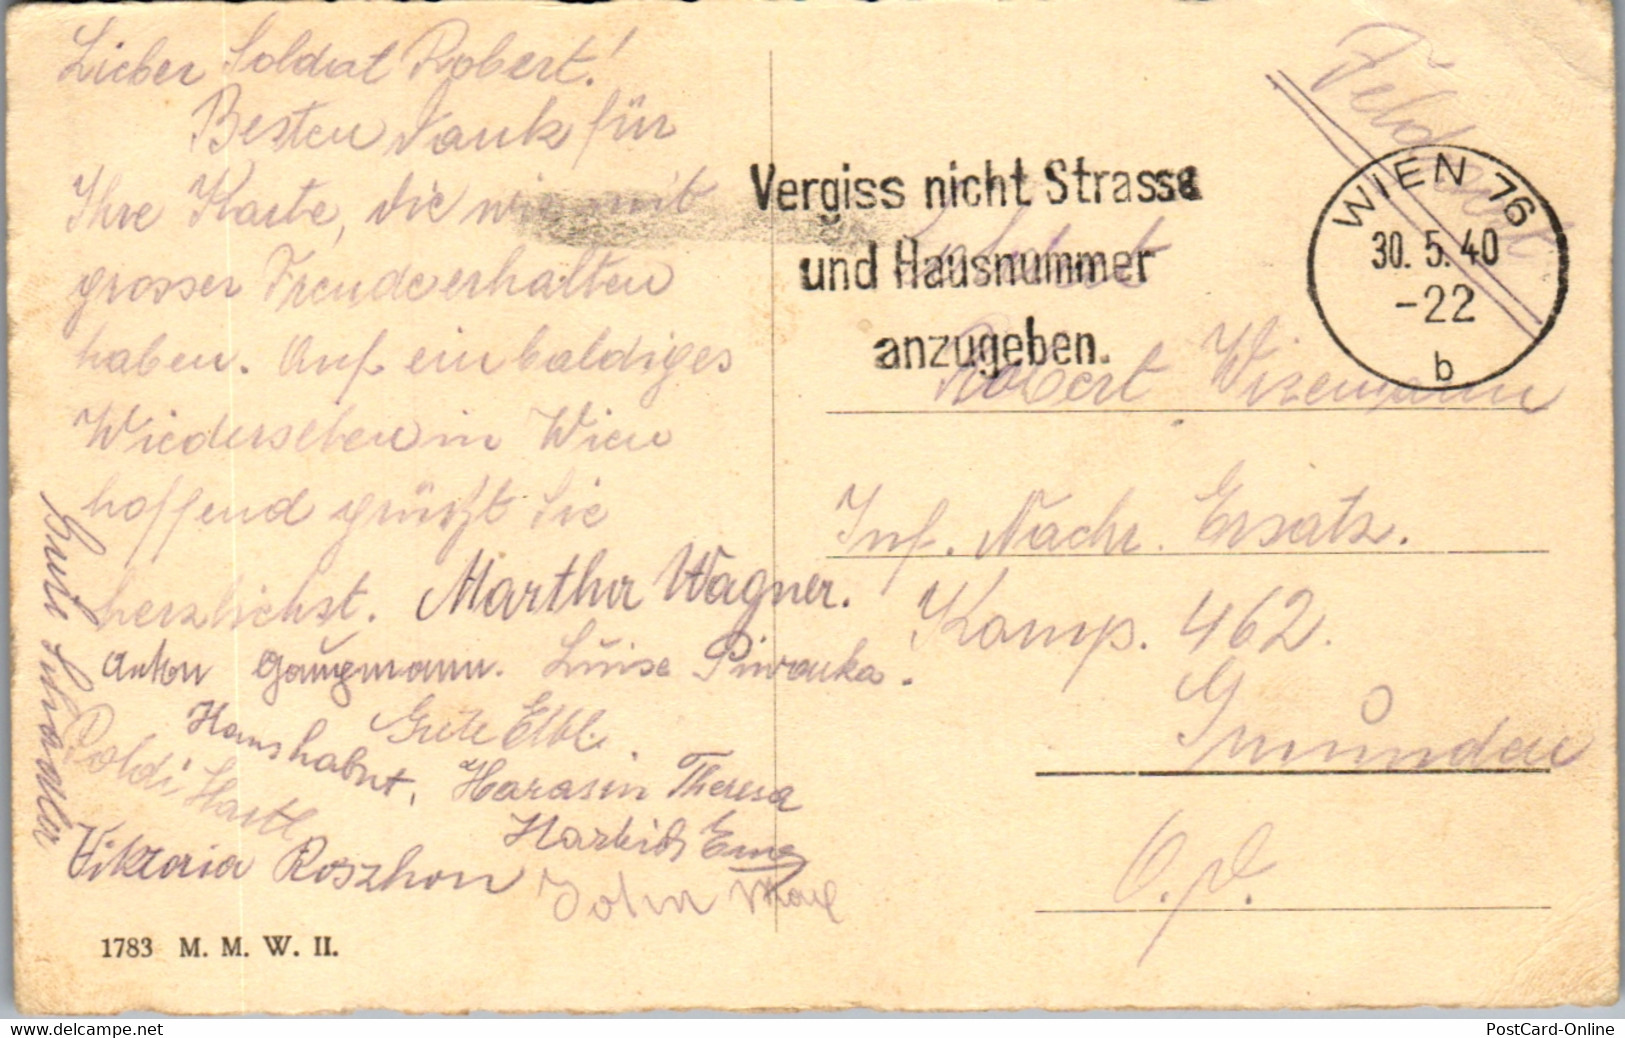 Lieber Soldat Robert!
Besten Dank für
Ihre Karte, die wir mit
grosser Freude erhalten
haben. Auf ein baldiges
Wiedersehen in Wien
hoffend grüßt Sie
herzlichst. Martha Wagner.
Anton Gaugmann. Luise Piwonka.
Hans habnt, Grete Elbl.
Poldi Hartl Harasin Theresa
Viktoria Roszhon
John
1783 M. M. W. II.
Feldpost
Vergiss nicht Strasse
und Hausnummer
anzugeben.
WIEN 76
30. 5. 40
-22
b
Soldat
Robert Wizemann
Inf. Nachr. Ersatz.
Komp. 462.
Gmunden
O. D.
delcampe.net
PostCard-Online